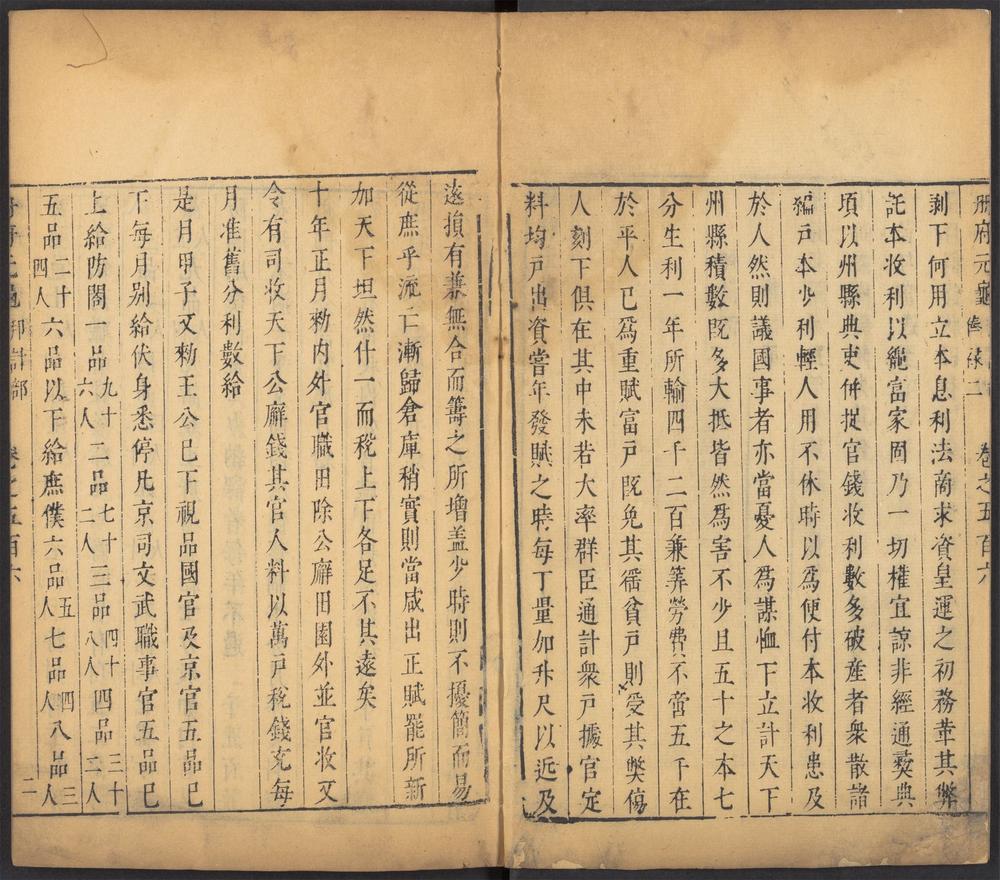 册府元龜 俸祿二 卷之五百六
剥下何用立本息利法商求資皇運之初務革其弊
託本收利以繩富家固乃一切權宜諒非經通彛典
項以州縣典吏併捉官錢收利數多破產者衆散諸
編戶本少利輕人用不休時以爲便付本收利患及
於人然則議國事者亦當憂人爲謀恤下立計天下
州縣積數既多大抵皆然爲害不少且五十之本七
分生利一年所輸四千二百兼筭勞費不啻五千在
於平人已爲重賦富戶既免其徭貧戶則受其獘傷
人刻下俱在其中未若大率群臣通計衆戶據官定
料均戶出資當年發賦之時每丁量加升尺以近及
遠損有兼無合而籌之所增盖少時則不擾簡而易
從庶乎流亡漸歸倉庫稍實則當咸出正賦罷所新
加天下坦然什一而稅上下各足不其遠矣
十年正月勑內外官職田除公廨田園外並官收又
令有司收天下公廨錢其官人料以萬戶稅錢充每
月准舊分利數給
是月甲子又勑王公已下視品國官及京官五品已
下每月别給伏身悉停凡京司文武職事官五品已
上給防閤一品九十六人二品七十二人三品四十八人四品三十二人
五品二十四人六品以下給庶僕六品五人七品四人八品三人
册府元龜 邦計部 卷之五百六 二